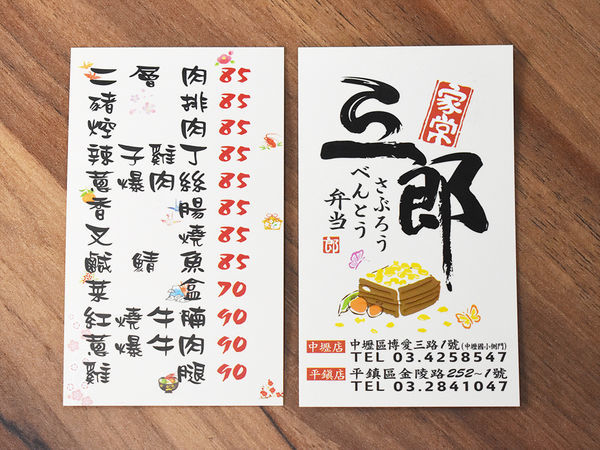 二層肉 85
豬排 85
焢肉 85
辣子雞丁 85
蔥爆肉絲 85
香腸 85
叉燒 85
鹹鯖魚 85
菜盒 70
紅燒牛腩 90
蔥爆牛肉 90
雞腿 90
家常
三郎
さぶろう
べんとう
弁当
郎
中壢店 中壢區博愛三路1號(中壢國小側門)
TEL 03.4258547
平鎮店 平鎮區金陵路252-1號
TEL 03.2841047